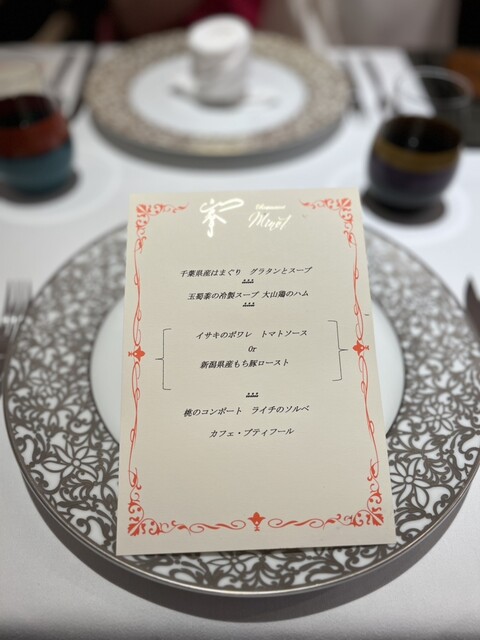 千葉県産はまぐり グラタンとスープ
玉蜀黍の冷製スープ 大山鶏のハム
イサキのポワレ トマトソース
Or
新潟県産もち豚ロースト
桃のコンポート ライチのソルベ
カフェ・プティフール